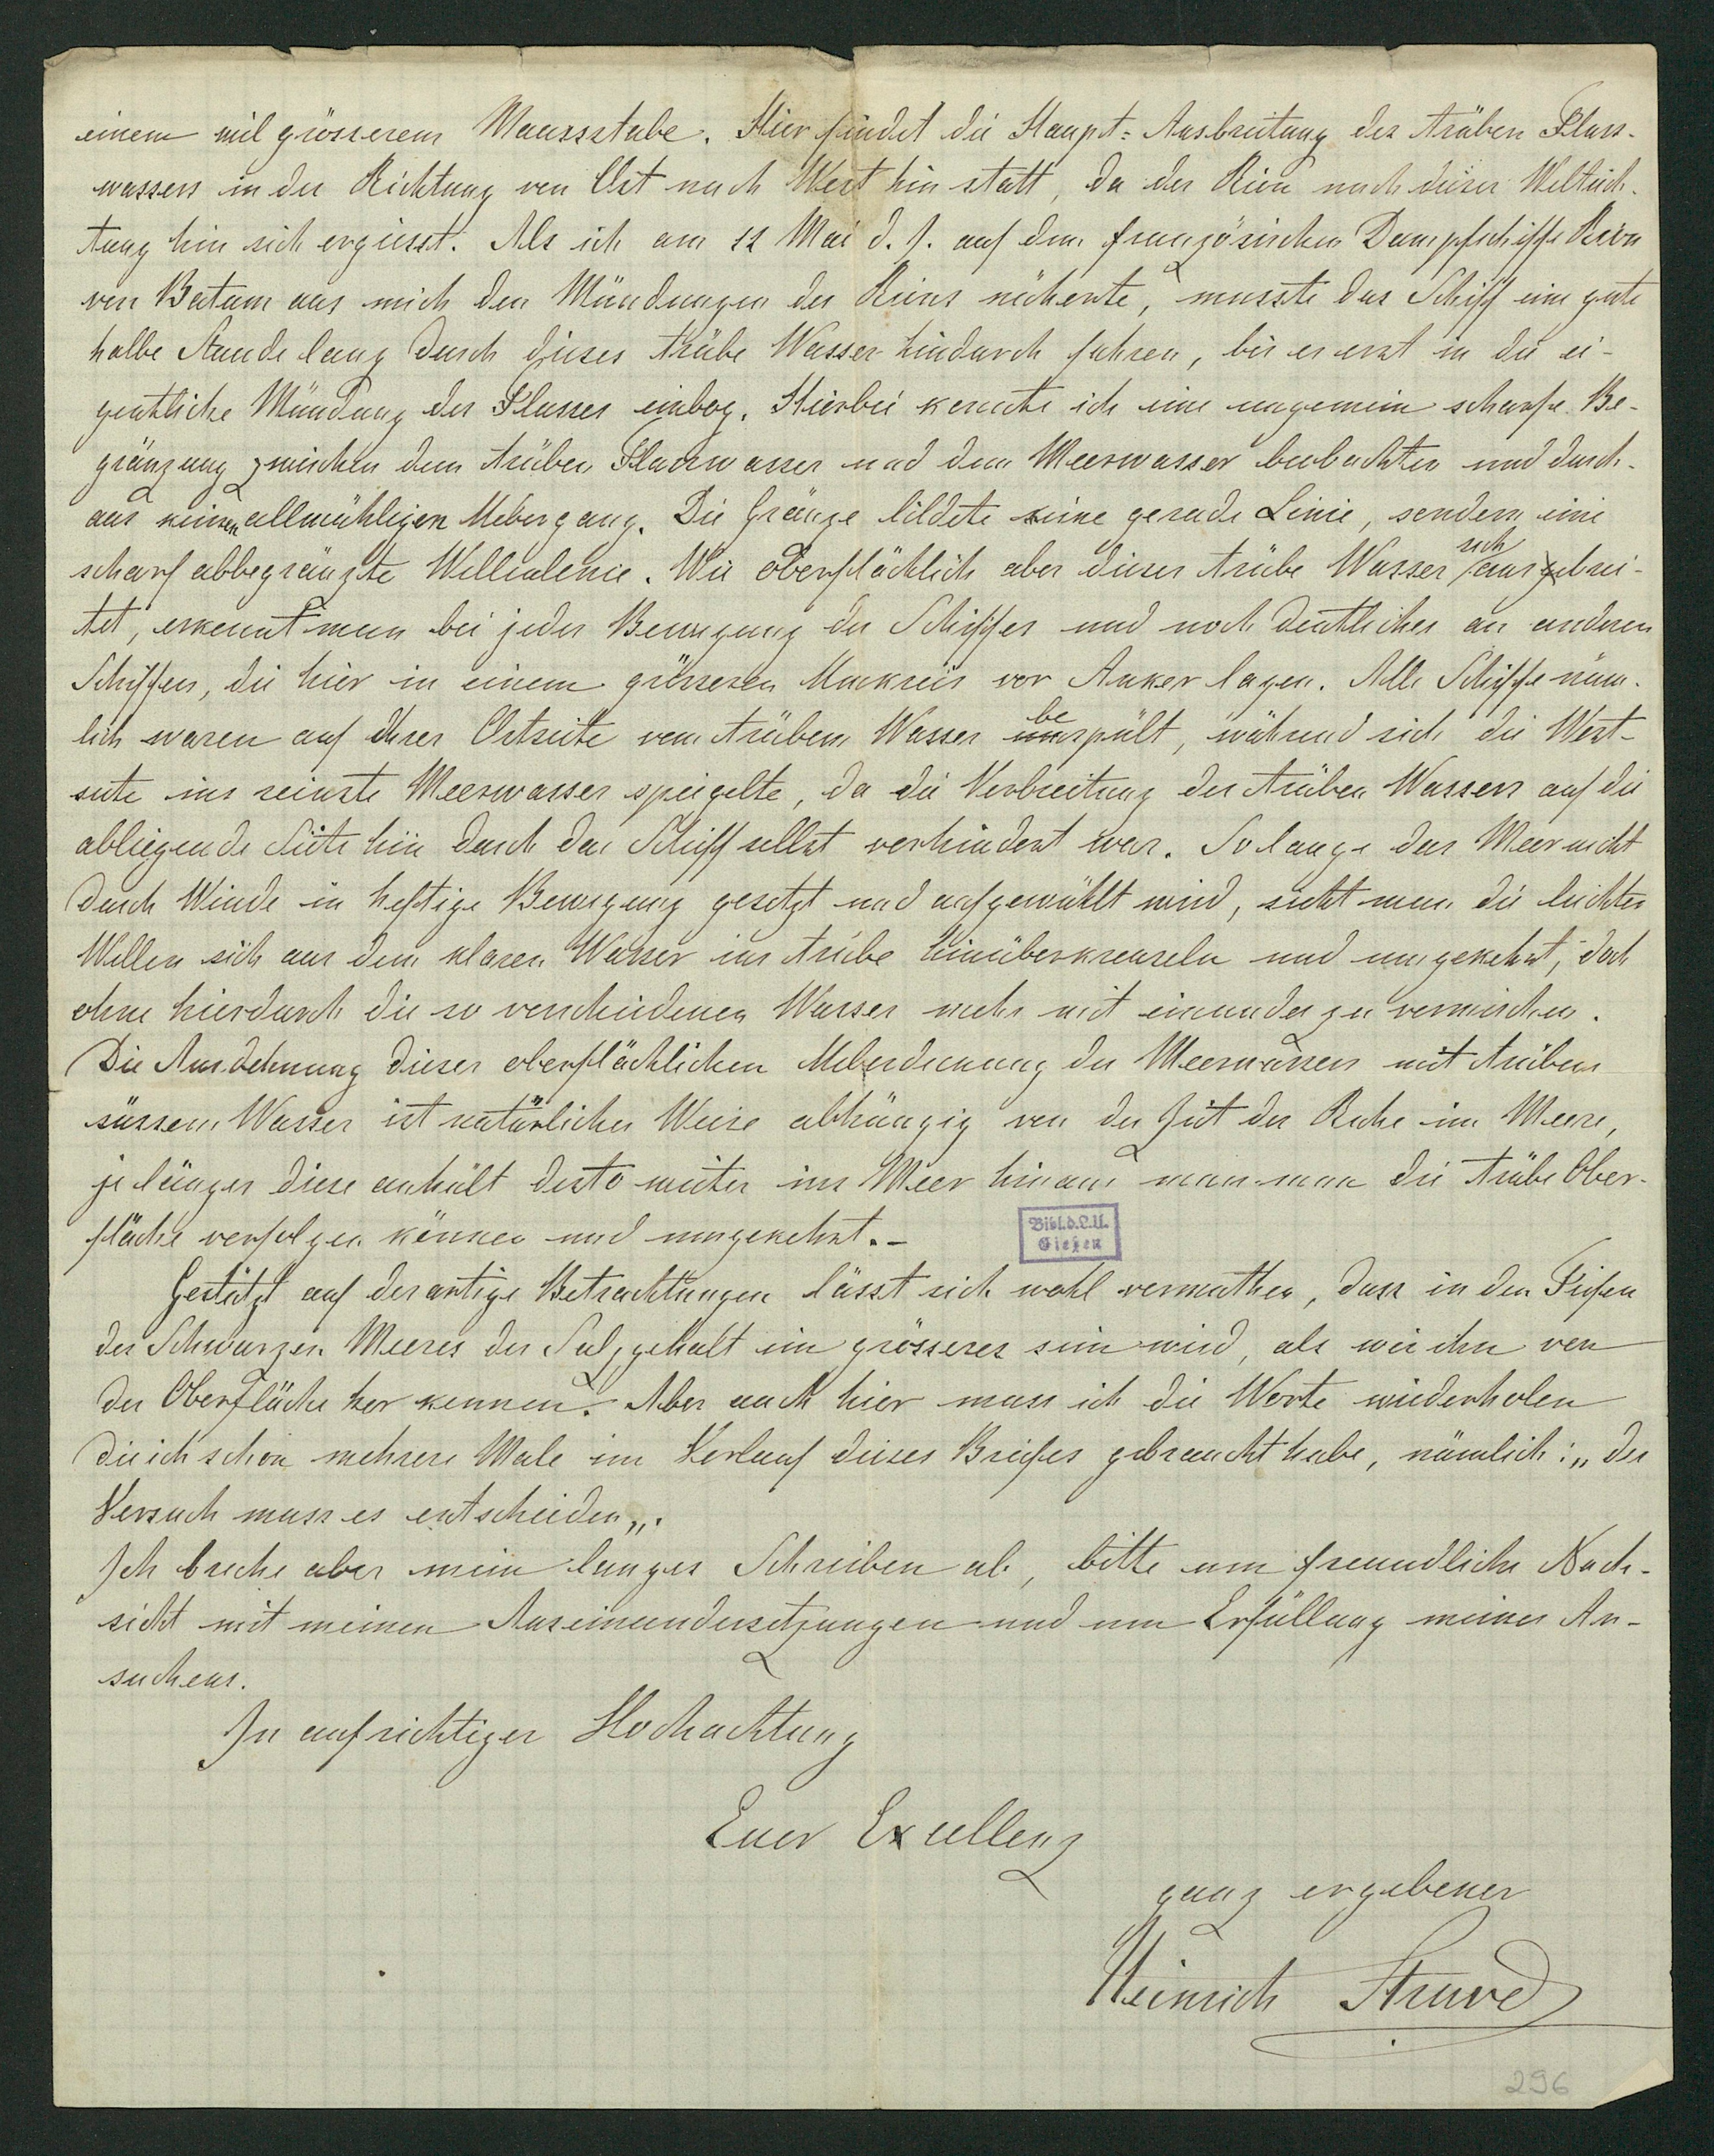 einem viel grösserem Maassstabe. Hier findet die Haupt-Ausbreitung des trüben Fluss-
wassers in der Richtung von Ost nach West hin statt, da der Rion nach dieser Weltrich-
tung hin sich ergiesst. Als ich am 12 Mai d. J. auf dem französischen Dampfschiffe Rion
von Batum aus mich den Mündungen des Rions näherte, musste das Schiff eine gute
halbe Stunde lang durch dieses trübe Wasser hindurch fahren, bis es erst in die ei-
gentliche Mündung des Flusses einbog. Hierbei konnte ich eine ungemein scharfe Be-
gränzung zwischen dem trüben Flusswasser und dem Meerwasser beobachten und durch-
aus keinen allmähligen Uebergang. Die Gränze bildete keine gerade Linie, sondern eine
scharf abbegränzte Wellenlenie. Wie oberflächlich aber dieses trübe Wasser sich ausgebrei-
tet, erkennt man bei jeder Bewegung des Schiffes und noch deutlicher an anderen
Schiffen, die hier in einem grösseren Umkreis vor Anker lagen. Alle Schiffe näm-
lich waren auf ihrer Ostseite vom trüben Wasser bespült, während sich die West-
seite ins reinste Meerwasser spiegelte, da die Verbreitung des trüben Wassers auf die
abliegende Seite hin durch das Schiff selbst verhindert war. So lange das Meer nicht
durch Winde in heftige Bewegung gesetzt und aufgewühlt wird, sieht man die leichten
Wellen sich aus dem klaren Wasser ins trübe hinüberkreuseln und umgekehrt, doch
ohne hierdurch die so verschiedenen Wasser mehr mit einander zu vermischen.
Die Ausdehnung dieser oberflächlichen Ueberdeckung des Meerwassers mit trüben
süssem Wasser ist natürlicher Weise abhängig von der Zeit der Ruhe im Meere,
je länger diese anhält desto weiter ins Meer hinaus man die trübe Ober-
fläche verfolgen können und umgekehrt.-
Bibl.d.L.U.
Gießen
Gestützt auf derartige Betrachtungen lässt sich wohl vermuthen, dass in den Tiefen
des Schwarzen Meeres der Salzgehalt ein grösserer sein wird, als wir ihn von
der Oberfläche her kennen. Aber auch hier muss ich die Worte wiederholen
die ich schon mehrere Male im Verlauf dieses Briefes gebraucht habe, nämlich: „der
Versuch muss es entscheiden„.
Ich breche aber mein langes Schreiben ab, bitte um freundliche Nach-
sicht mit meinen Auseinandersetzungen und um Erfüllung meines An-
suchens.
In aufrichtiger Hochachtung
Euer Excellenz
ganz ergebener
Heinrich Struve
296